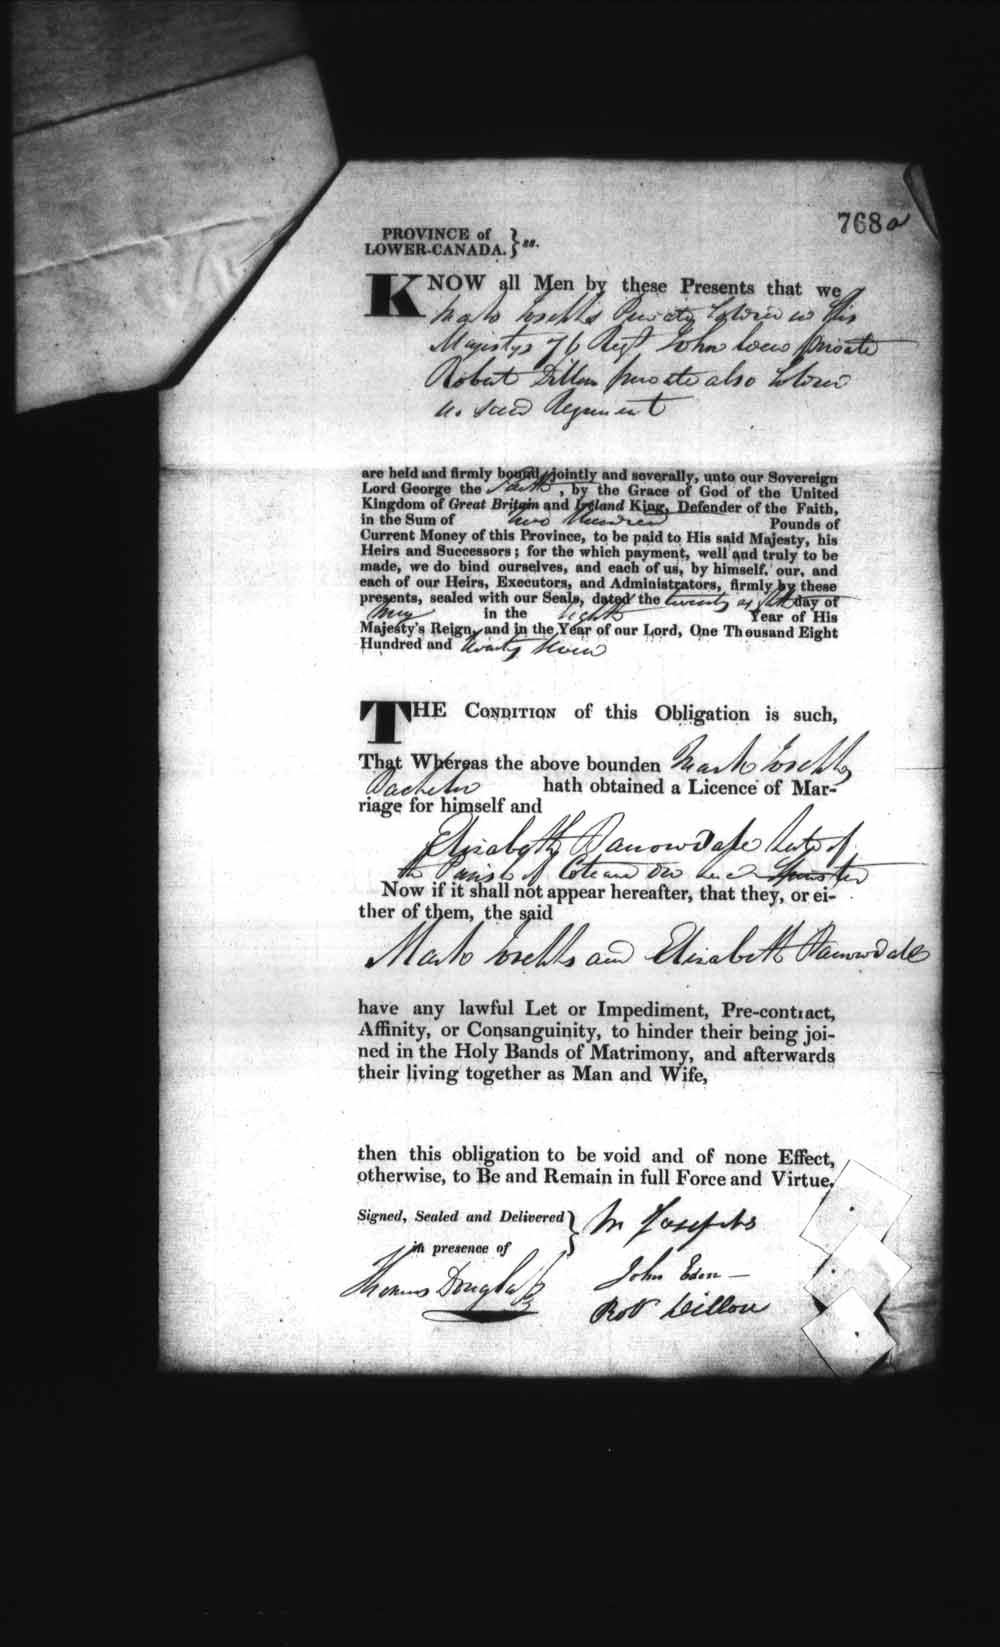 768a
PROVINCE of
LOWER-CANADA. } ss.
KNOW all Men by these Presents that we
Mark Josephs Private Soldier in His
Majestys 76 Regt John Eden private
Robert Dillon private also Soldier
in said Regiment
are held and firmly bound, jointly and severally, unto our Sovereign
Lord George the Fourth, by the Grace of God of the United
Kingdom of Great Britain and Ireland King, Defender of the Faith,
in the Sum of two Hundred Pounds of
Current Money of this Province, to be paid to His said Majesty, his
Heirs and Successors; for the which payment, well and truly to be
made, we do bind ourselves, and each of us, by himself, our, and
each of our Heirs, Executors, and Administrators, firmly by these
presents, sealed with our Seals, dated the twenty day of
in the Eighth Year of His
Majesty's Reign, and in the Year of our Lord, One Thousand Eight
Hundred and twenty seven
THE CONDITION of this Obligation is such,
That Whereas the above bounden Mark Josephs
Bachelor hath obtained a Licence of Mar-
riage for himself and
Elizabeth late of
the Parish of Coteau du Lac Spinster
Now if it shall not appear hereafter, that they, or ei-
ther of them, the said
Mark Josephs and Elizabeth
have any lawful Let or Impediment, Pre-contract,
Affinity, or Consanguinity, to hinder their being joi-
ned in the Holy Bands of Matrimony, and afterwards
their living together as Man and Wife,
then this obligation to be void and of none Effect,
otherwise, to Be and Remain in full Force and Virtue.
Signed, Sealed and Delivered } M Josephs
in presence of
Thomas Douglass John Eden
Robt Dillon